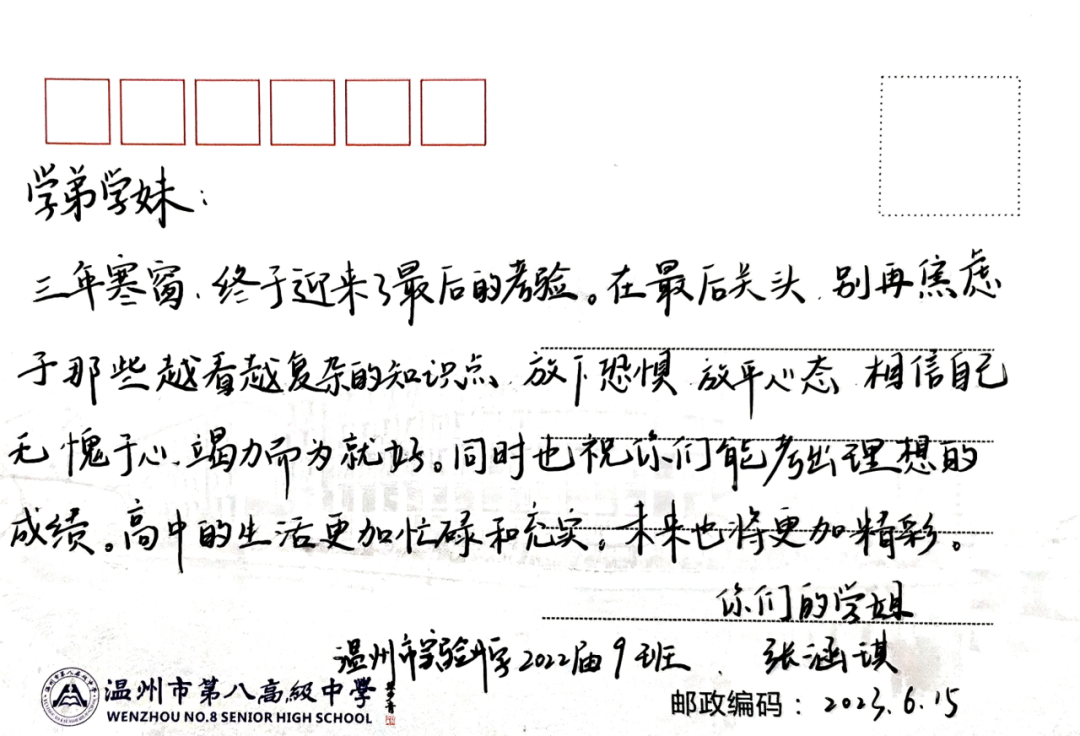 学弟学妹：
三年寒窗，终于迎来了最后的考验。在最后关头，别再焦虑
于那些越看越复杂的知识点，放下恐惧，放平心态，相信自己
无愧于心，竭力而为就好。同时也祝你们能考出理想的
成绩。高中的生活更加忙碌和充实，未来也将更加精彩。
你们的学姐
温州市实验中学2022届9班、张涵琪
温州市第八高級中學
WENZHOU NO.8 SENIOR HIGH SCHOOL
邮政编码：2023.6.15